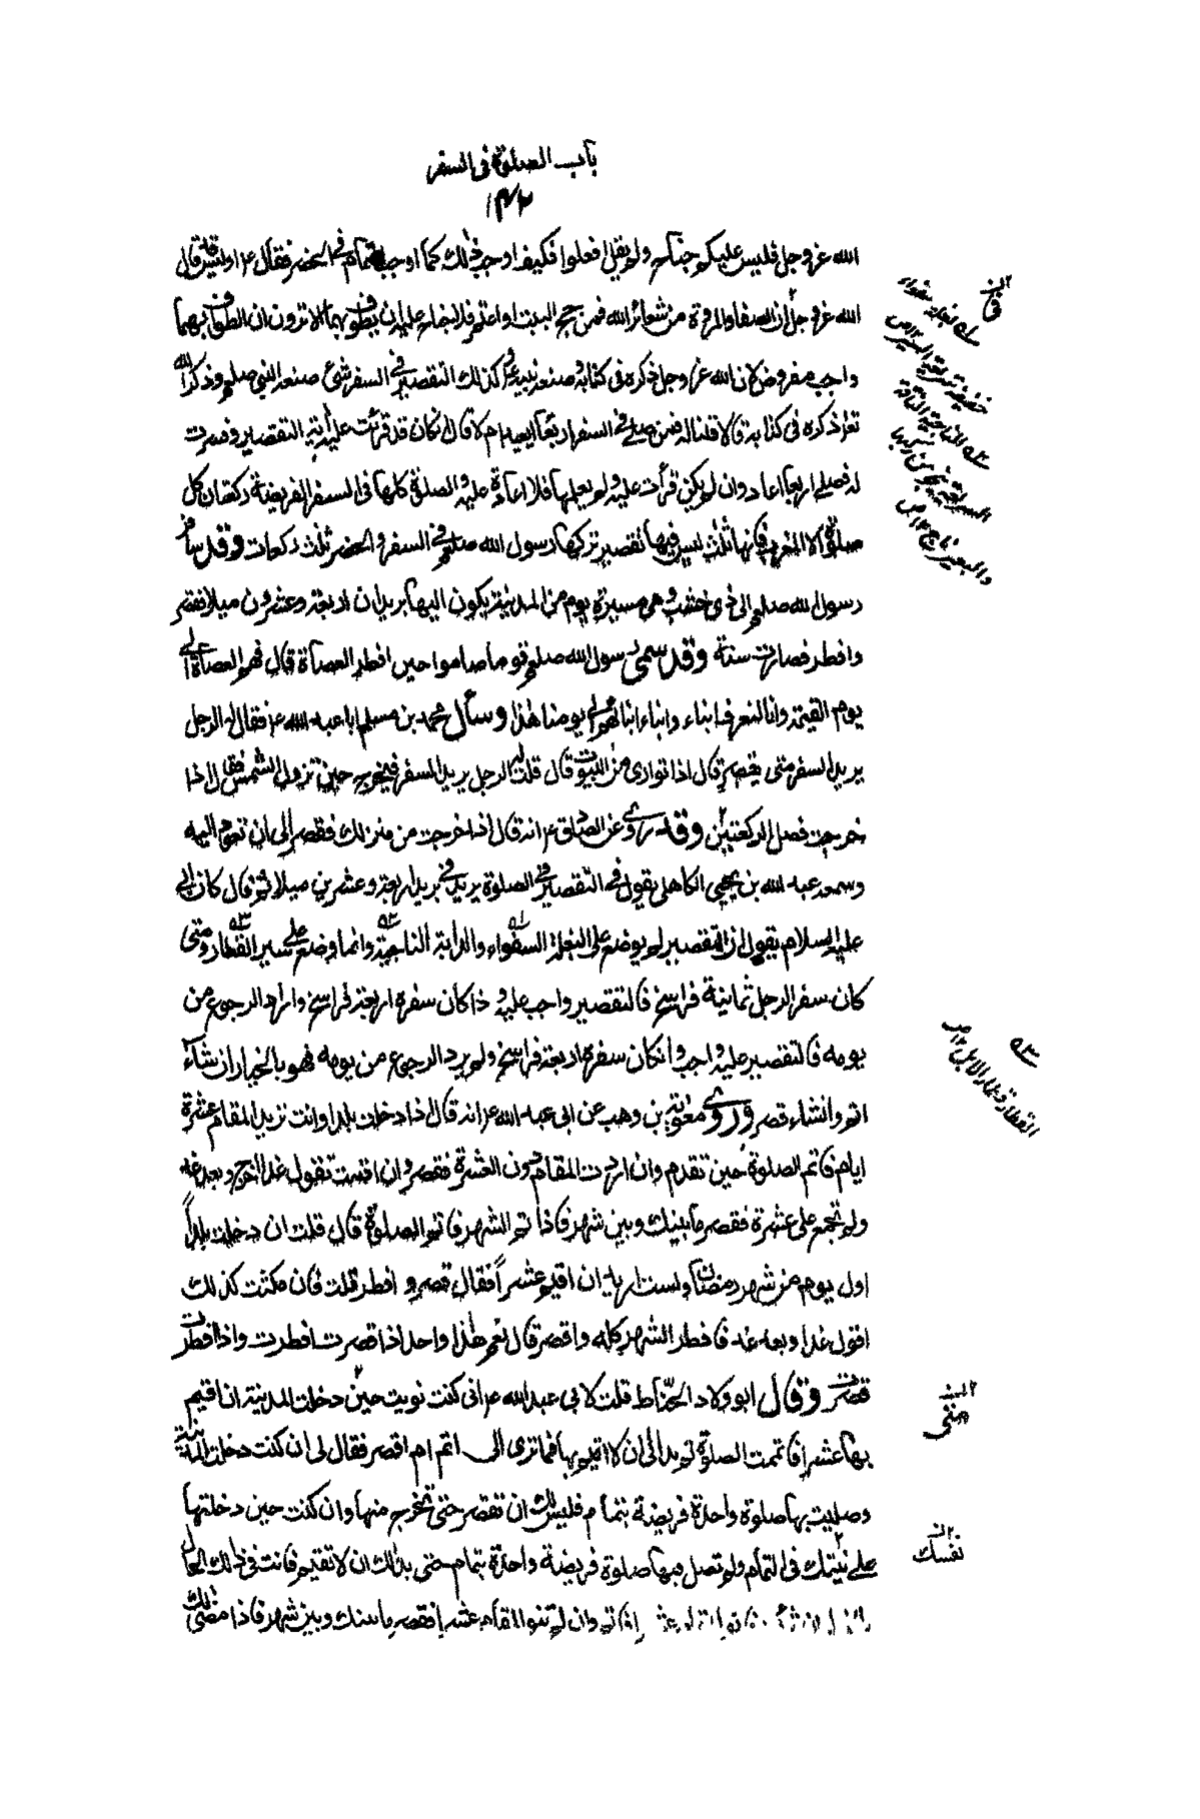 باب الصلوة فى السفر
١٤٢
الله عز وجل فليس عليكم جناح ولم يقل افعلوا فكيف اوجب ذلك كما اوجب التمام فى الحضر فقال ع او ليس قد قال
الله عز وجل ان الصفا والمروة من شعائر الله فمن حج البيت او اعتمر فلا جناح عليه ان يطوف بهما الا ترون ان الطواف بهما
واجب مفروض لان الله عز وجل ذكره فى كتابه وصنعه نبيه ع كذلك التقصير فى السفر شئ صنعه النبى صلعم وذكر الله
تعالى ذكره فى كتابه قالا قلنا له فمن صلى فى السفر اربعا ايعيد ام لا قال ان كان قد قرئت عليه اية التقصير وفسرت
له فصلى اربعا اعاد وان لم يكن قرأت عليه ولم يعلمها فلا اعادة عليه والصلوة كلها فى السفر الفريضة ركعتان كل
صلوة الا المغرب فانها ثلث ليس فيها تقصير تركها رسول الله صلعم فى السفر والحضر ثلث ركعات وقد سافر
رسول الله صلعم الى ذى خشب وهى مسيرة يوم من المدينة يكون اليها بريدان اربعة وعشرون ميلا فقصر
وافطر فصارت سنة وقد سمى رسول الله صلعم قوما صاموا حين افطر العصاة قال فهم العصاة الى
يوم القيمة وانا لنعرف ابناءهم وابناء ابنائهم الى يومنا هذا وسأل محمد بن مسلم ابا عبد الله ع فقال له الرجل
يريد السفر متى يقصر قال اذا توارى من البيوت قال قلت له الرجل يريد السفر فيخرج حين تزول الشمس فقال اذا
خرجت فصل الركعتين وقد روى عن الصادق ع انه قال اذا خرجت من منزلك فقصر الى ان تعود اليه
وسمعه عبد الله بن يحيى الكاهلى يقول فى التقصير فى الصلوة بريد فى بريد اربعة وعشرين ميلا ثم قال كان ابى
عليه السلام يقول ان التقصير لم يوضع على البغلة السفواء والدابة الناجية وانما وضع على سير القطار ومتى
كان سفر الرجل ثمانية فراسخ فالتقصير واجب عليه واذا كان سفره اربعة فراسخ واراد الرجوع من
يومه فالتقصير عليه واجب وان كان سفره اربعة فراسخ ولم يرد الرجوع من يومه فهو بالخيار ان شاء
اتم وان شاء قصر وروى معوية بن وهب عن ابى عبد الله ع انه قال اذا دخلت بلدا وانت تريد المقام عشرة
ايام فاتم الصلوة حين تقدم وان اردت المقام دون العشرة فقصر وان اقمت تقول غدا اخرج وبعد غد
ولم تجمع على عشرة فقصر ما بينك وبين شهر فاذا تم الشهر فاتم الصلوة قال قلت ان دخلت بلدا
اول يوم من شهر رمضان ولست اريد ان اقيم عشرا فقال قصر وافطر قلت فان مكثت كذلك
اقول غدا وبعد غد فافطر الشهر كله واقصر قال نعم هذا واحد اذا قصرت افطرت واذا افطرت
قصرت وقال ابو ولاد الحناط قلت لابى عبد الله ع انى كنت نويت حين دخلت المدينة ان اقيم
بها عشرا فاتممت الصلوة ثم بدا لى ان لا اقيم بها فما ترى لى اتم ام اقصر فقال لى ان كنت دخلت المدينة
وصليت بها صلوة واحدة فريضة بتمام فليس لك ان تقصر حتى تخرج منها وان كنت حين دخلتها
على نيتك فى التمام ولم تصل فيها صلوة فريضة واحدة بتمام حتى بدا لك ان لا تقيم فانت فى ذلك الحال
بالخيار ان شئت فانو المقام عشرا فاتم وان لم تنو المقام عشرا فقصر ما بينك وبين شهر فاذا مضى لك
منى
نفسك